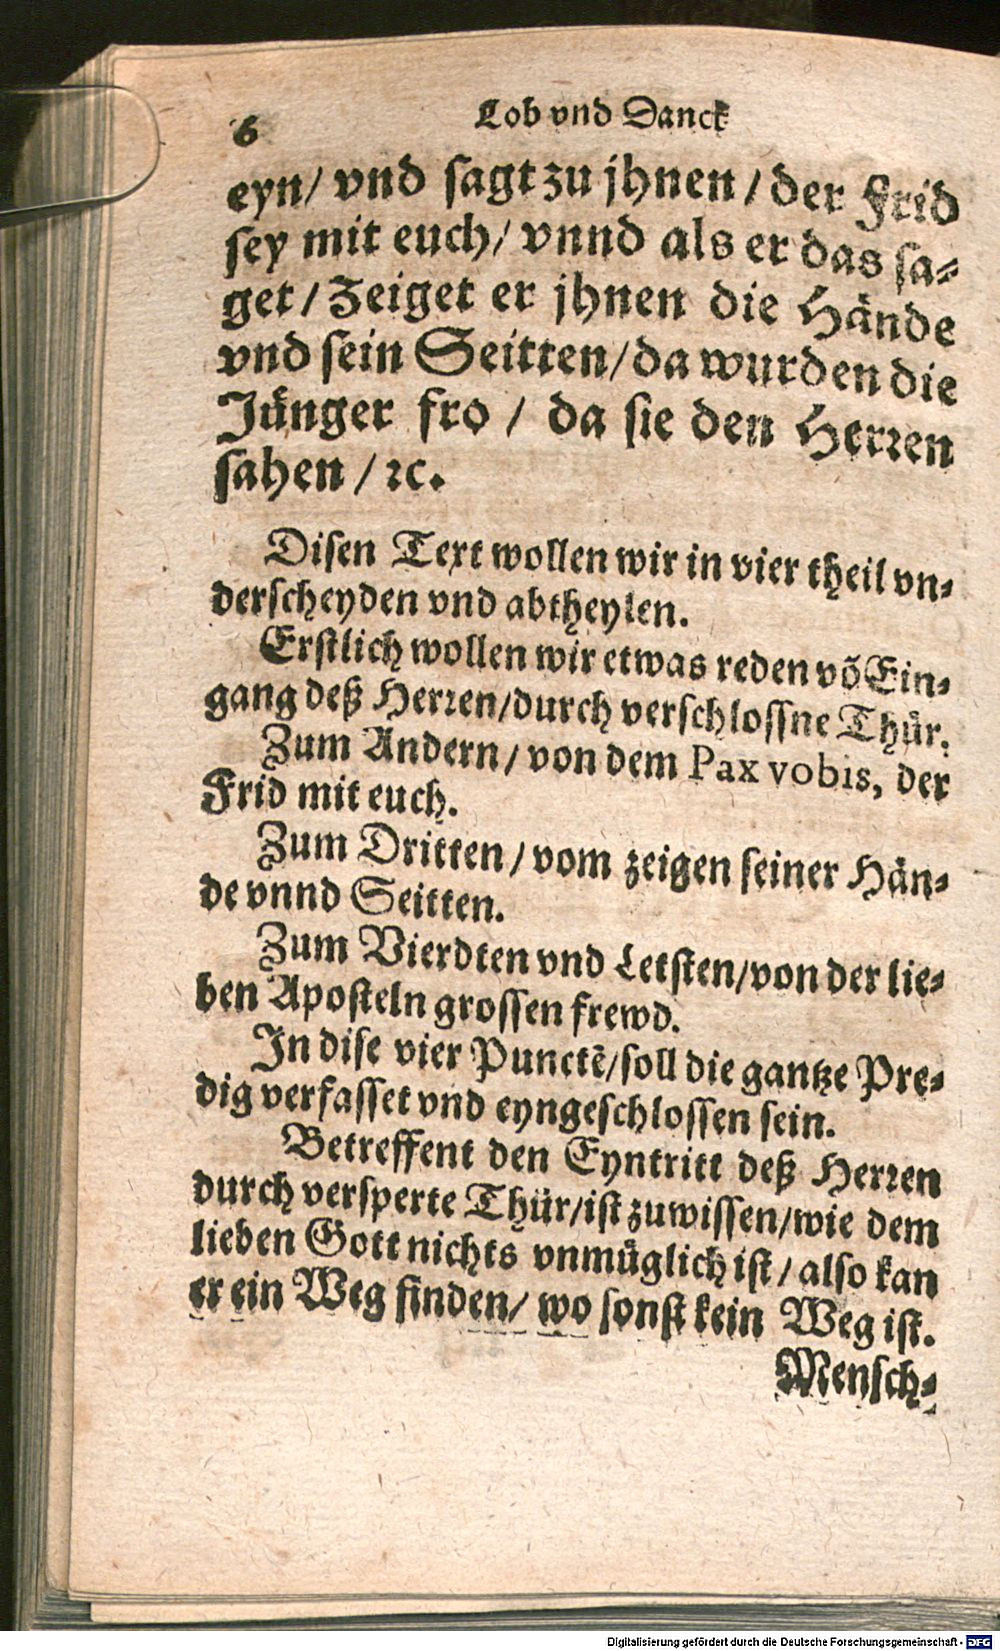 6 Lob vnd Danck
eyn/ vnd ſagt zu jhnen / der Frid
ſey mit euch/ vnnd als er das ſa⸗
get / Zeiget er jhnen die Haͤnde
vnd ſein Seitten/ da wurden die
Juͤnger fro / da ſie den Herꝛen
ſahen / ꝛc.
Diſen Text wollen wir in vier theil vn⸗
derſcheyden vnd abtheylen.
Erſtlich wollen wir etwas reden võ Ein⸗
gang deß Herꝛen/durch verſchloſſne Thuͤr.
Zum Andern / von dem Pax vobis, der
Frid mit euch.
Zum Dritten / vom zeigen ſeiner Haͤn⸗
de vnnd Seitten.
Zum Vierdten vnd Letſten/von der lie⸗
ben Apoſteln groſſen frewd.
In diſe vier Punctẽ/ſoll die gantze Pre⸗
dig verfaſſet vnd eyngeſchloſſen ſein.
Betreffent den Eyntritt deß Herꝛen
durch verſperte Thuͤr/iſt zuwiſſen/wie dem
lieben Gott nichts vnmuͤglich iſt / alſo kan
er ein Weg finden/ wo ſonſt kein Weg iſt.
Menſch⸗
Digitalisierung gefördert durch die Deutsche Forschungsgemeinschaft - DFG